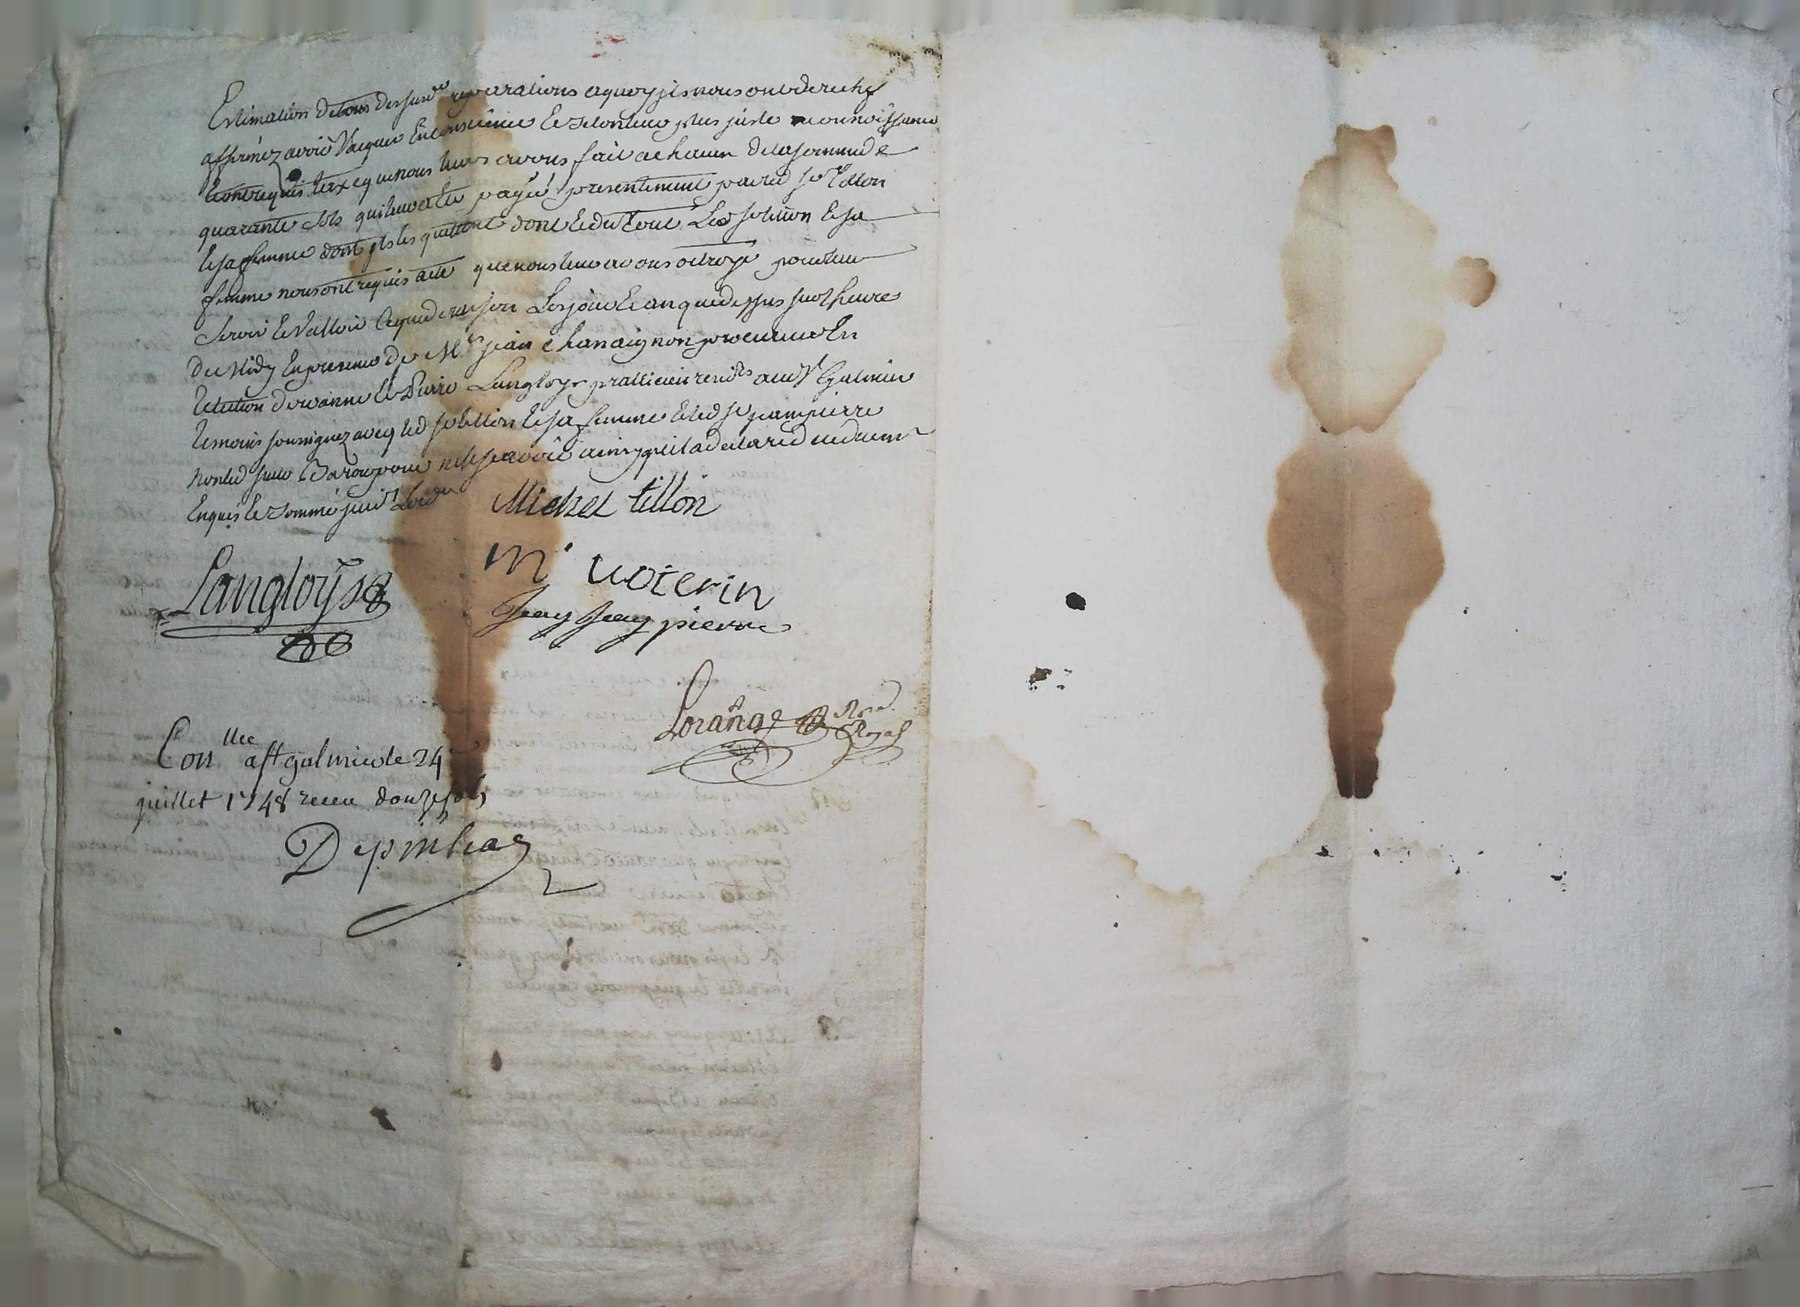 Estimation de tous desusd. reparations aquoy jls nous ont derechef
affirmez avoir Vacqué En Conscience Et selon leur plus juste reconnoissance
Et ont requis taxe que nous leurs avons fait a chacun de la somme de
quarante sols qui leur a Eté payée presentement par led. sr. tillon
Et sa femme dont jls les quittent dont Et du tout Led. sr tillon Et sa
femme nous ont requis acte que nous leur avons octroyé pour leur
servir Et Valloir Ce que de raison Les jour Et an que dessus sur l'heure
de Midy En presence de Me. jean chanaignon procureur En
Lelection de roanne Et Pierre Langloys pratticien rend. aud. St. Galmier
temoins soussignez avec led. sr tillon Et sa femme Et led. sr. jeampierre
non led. Barou pour ne sçavoir ainsy qu'il a declaré
Enquis Et sommé suivt. Lord.
Michel tillon
Langloys
m uoterin
Jean Jean pierre
Lorange Nore. Royal
Conllé a st galmier le 24
juillet 1748 receu douze sols
Depinhac